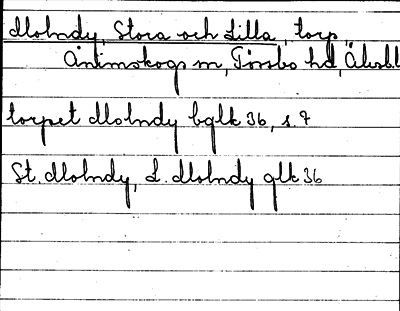 Molndy, Stora och Lilla, torp,
Ånimskogs sn, Tössbo hd, Älvsbl
torpet Molndy bglk 36, s. 7
St. Molndy, L. Molndy glk 36